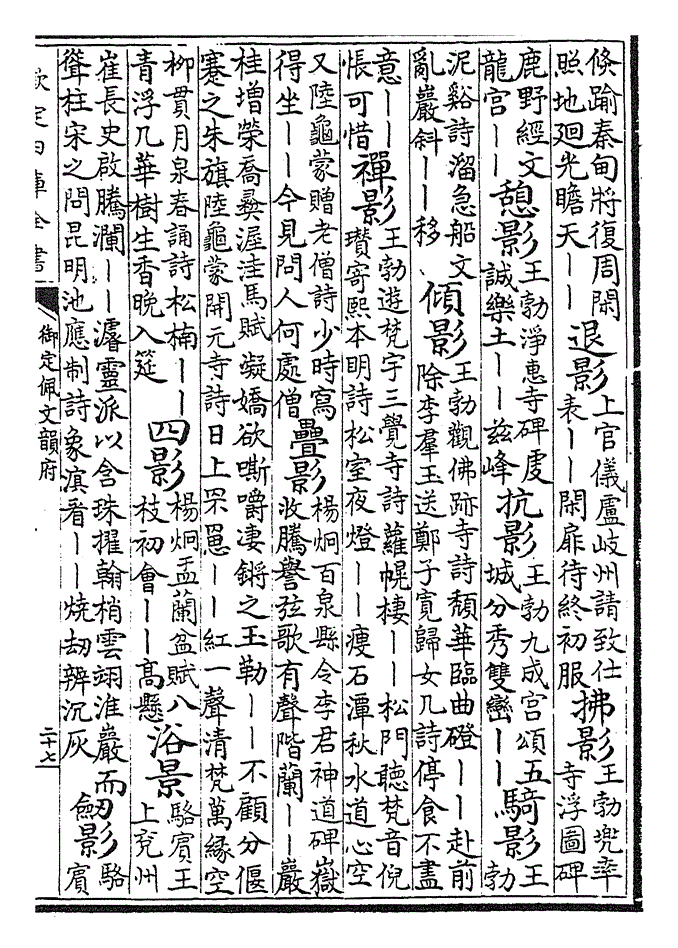 倐踰秦甸將復周閑
照地廻光瞻天丨丨
退影
上官儀盧岐州請致仕
表丨丨閑扉待終初服
拂影
王勃兜率
寺浮圖碑
鹿野經文
龍宫丨丨
憩影
王勃淨惠寺碑虔
誠樂土丨丨兹峰
抗影
王勃九成宫頌五
城分秀雙巒丨丨
騎影
王
勃
泥谿詩溜急船文
亂巖斜丨丨移
傾影
王勃觀佛跡寺詩頽華臨曲磴丨丨赴前
除李羣玉送鄭子寛歸女几詩停食不盡
意丨丨
悵可惜
禪影
王勃遊梵宇三覺寺詩蘿幌棲丨丨松門聽梵音倪
瓚寄熙本明詩松室夜燈丨丨瘦石潭秋水道心空
又陸龜蒙贈老僧詩少時寫
得坐丨丨今見問人何處僧
疊影
楊炯百泉縣令李君神道碑嶽
收騰譽弦歌有聲階蘭丨丨巖
桂增榮喬彛渥洼馬賦凝嬌欲嘶嚼凄鏘之玉勒丨丨不顧分偃
蹇之朱旗陸龜蒙開元寺詩日上罘罳丨丨紅一聲清梵萬緣空
柳貫月泉春誦詩松楠丨丨
青浮几華樹生香晚入筵
四影
楊炯盂蘭盆賦八
枝初會丨丨高懸
浴景
駱賓王
上兖州
崔長史啟騰瀾丨丨濬靈派以含珠擢翰梢雲翊淮巖而
聳柱宋之問昆明池應制詩象溟看丨丨燒劫辨沉灰
劒影
駱
賓
欽定四庫全書
御定佩文韻府
二十七